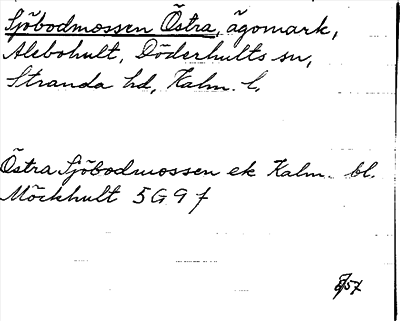 Sjöbodmossen Östra, ägomark,
Alebohult, Döderhults sn,
Stranda hd, Kalm. l.
Östra Sjöbodmossen ek Kalm. bl.
Möckhult 5G9f